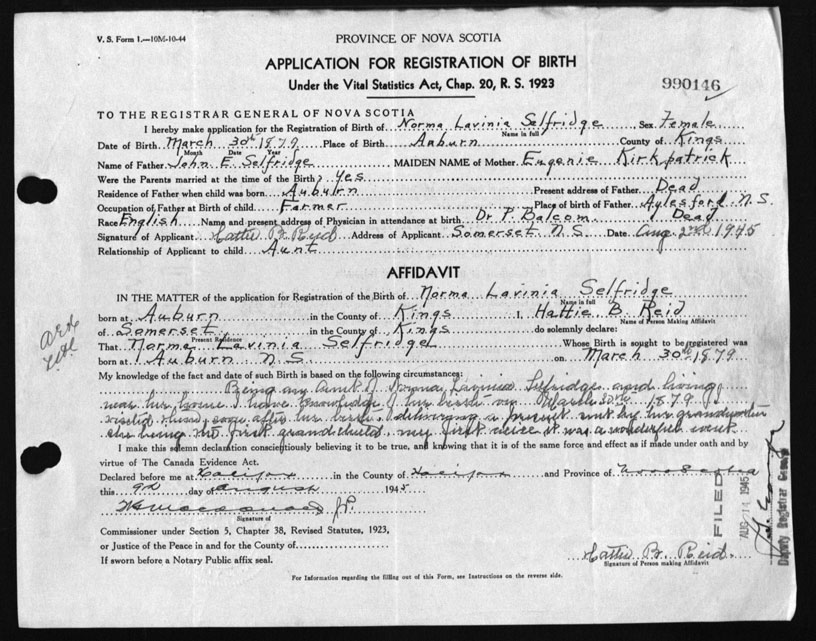 V. S. Form 1.—10M-10-44
PROVINCE OF NOVA SCOTIA
APPLICATION FOR REGISTRATION OF BIRTH
Under the Vital Statistics Act, Chap. 20, R. S. 1923
990146
TO THE REGISTRAR GENERAL OF NOVA SCOTIA
I hereby make application for the Registration of Birth of Norma Lavinia Selfridge, Sex Female
Name in full
Date of Birth March 30th 1879 Place of Birth Auburn County of Kings
Month Date Year
Name of Father John E. Selfridge MAIDEN NAME of Mother Eugenie Kirkpatrick
Were the Parents married at the time of the Birth? Yes
Residence of Father when child was born Auburn Present address of Father Dead
Occupation of Father at Birth of child Farmer Place of birth of Father Aylesford N.S.
Race English Name and present address of Physician in attendance at birth Dr P. Balcom Dead
Signature of Applicant Hattie B. Reid Address of Applicant Somerset N.S. Date Aug. 2nd 1945
Relationship of Applicant to child Aunt
AFFIDAVIT
IN THE MATTER of the application for Registration of the Birth of Norma Lavinia Selfridge
Name in full
born at Auburn in the County of Kings I, Hattie B. Reid
Name of Person Making Affidavit
of Somerset, in the County of Kings do solemnly declare:
Present Residence
That Norma Lavinia Selfridge Whose Birth is sought to be registered was
born at Auburn N.S. on March 30th 1879
My knowledge of the fact and date of such Birth is based on the following circumstances:
Being an Aunt of Norma Lavinia Selfridge and living
near her home I have knowledge of her birth on March 30th 1879 I
visited soon after her birth, a present sent by her grandmother
she being the first grandchild, my first niece it was a wonderful
I make this solemn declaration conscientiously believing it to be true, and knowing that it is of the same force and effect as if made under oath and by
virtue of The Canada Evidence Act.
Declared before me at Halifax in the County of Halifax and Province of Nova Scotia
this 9th day of August 1945
J.P.
Signature of
Commissioner under Section 5, Chapter 38, Revised Statutes, 1923,
or Justice of the Peace in and for the County of
If sworn before a Notary Public affix seal.
Hattie B. Reid.
Signature of Person making Affidavit
For Information regarding the filling out of this Form, see Instructions on the reverse side.
FILED
AUG 14 1945
Deputy Registrar General